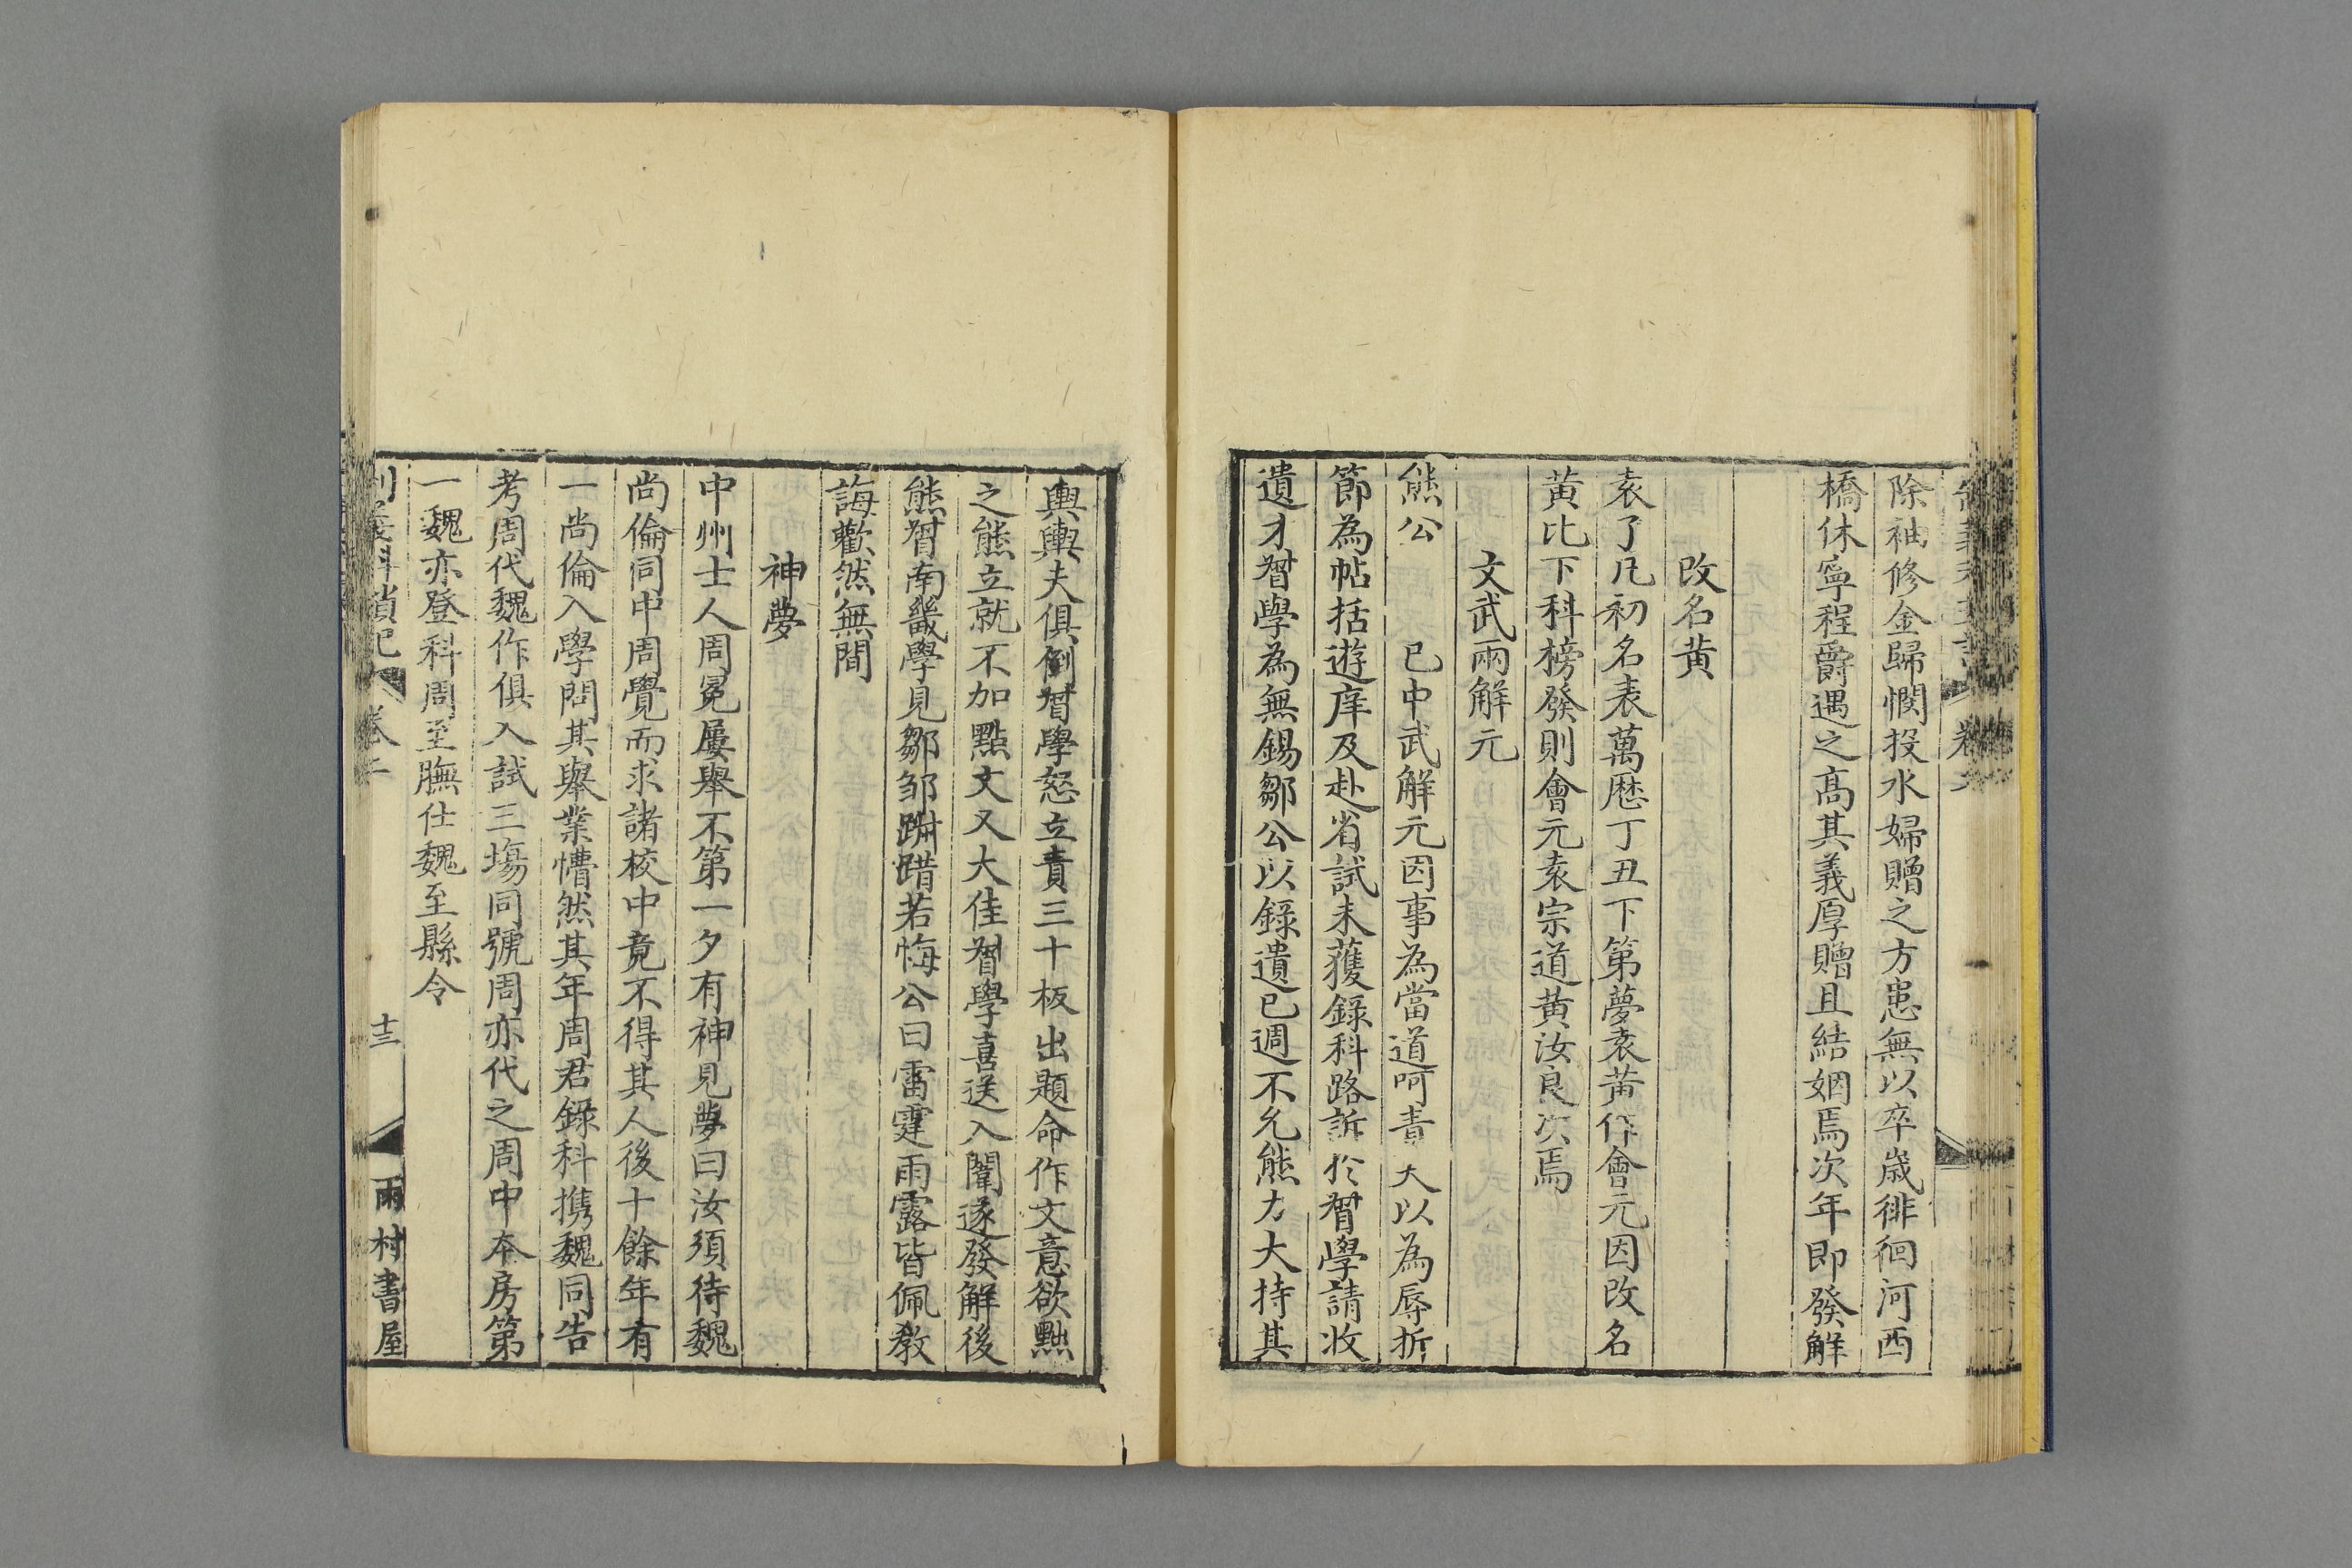 除袖修金歸憫投水婦贈之方患無以卒歲徘徊河西
橋休寧程爵遇之高其義厚贈且結姻焉次年即發解
改名黃
袁了凡初名表萬曆丁丑下第夢袁黃作會元因改名
黃比下科榜發則會元袁宗道黃汝良次焉
文武兩解元
熊公 已中武解元因事為當道呵責大以為辱折
節為帖括遊庠及赴省試未獲錄科路訴於督學請收
遺才督學為無錫鄒公以錄遺已週不允熊力大持其
輿輿夫俱倒督學怒立責三十板出題命作文意欲黜
之熊立就不加點文又大佳督學喜送入闈遂發解後
熊督南畿學見鄒邹跼踖若悔公曰雷霆雨露皆佩教
誨歡然無間
神夢
中州士人周冕屢舉不第一夕有神見夢曰汝須待魏
尚倫同中周覺而求諸校中竟不得其人後十餘年有
一尚倫入學問其舉業懵然其年周君錄科携魏同告
考周代魏作俱入試三場同號周亦代之周中本房第
一魏亦登科周至膴仕魏至縣令
科瑣記 卷二 十三 雨村書屋